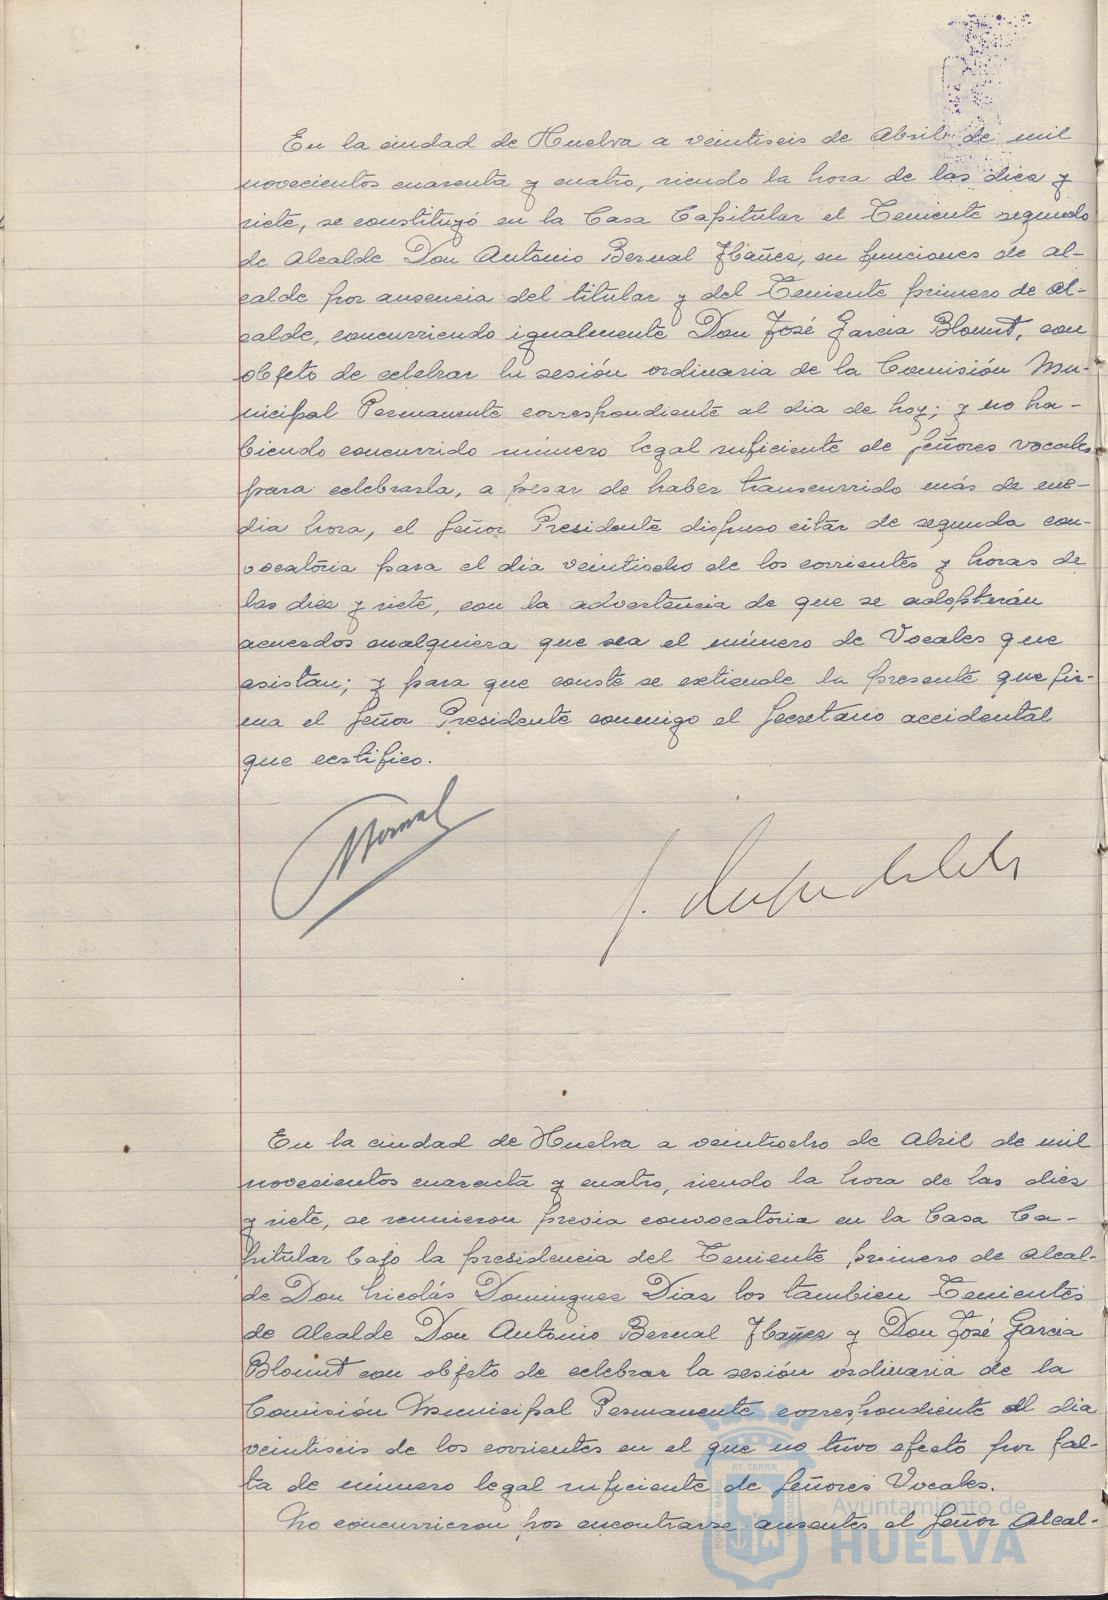 En la ciudad de Huelva a veintiseis de Abril de mil
novecientos cuarenta y cuatro, siendo la hora de las diez y
siete, se constituyó en la Casa Capitular el Teniente segundo
de Alcalde Don Antonio Bernal Ybañez, en funciones de al-
calde por ausencia del titular y del Teniente primero de Al-
calde, concurriendo igualmente Don José Garcia Blount, con
objeto de celebrar la sesión ordinaria de la Comisión Mu-
nicipal Permanente correspondiente al dia de hoy; y no ha-
biendo concurrido número legal suficiente de señores vocales
para celebrarla, a pesar de haber transcurrido más de me-
dia hora, el Señor Presidente dispuso citar de segunda con-
vocatoria para el dia veintiocho de los corrientes y horas de
las diez y siete, con la advertencia de que se adoptarán
acuerdos cualquiera que sea el número de Vocales que
asistan; y para que conste se extiende la presente que fir-
ma el Señor Presidente conmigo el Secretario accidental
que certifico.
Bernal
En la ciudad de Huelva a veintiocho de Abril de mil
novecientos cuarenta y cuatro, siendo la hora de las diez
y siete, se reunieron previa convocatoria en la Casa Ca-
pitular bajo la presidencia del Teniente primero de Alcal-
de Don Nicolás Dominguez Diaz los tambien Tenientes
de Alcalde Don Antonio Bernal Ybañez y Don José Garcia
Blount con objeto de celebrar la sesión ordinaria de la
Comisión Municipal Permanente correspondiente al dia
veintiseis de los corrientes en el que no tuvo efecto por fal-
ta de número legal suficiente de Señores Vocales.
No concurrieron por encontrarse ausentes el Señor Alcal-
ET TERRA
Ayuntamiento de
HUELVA